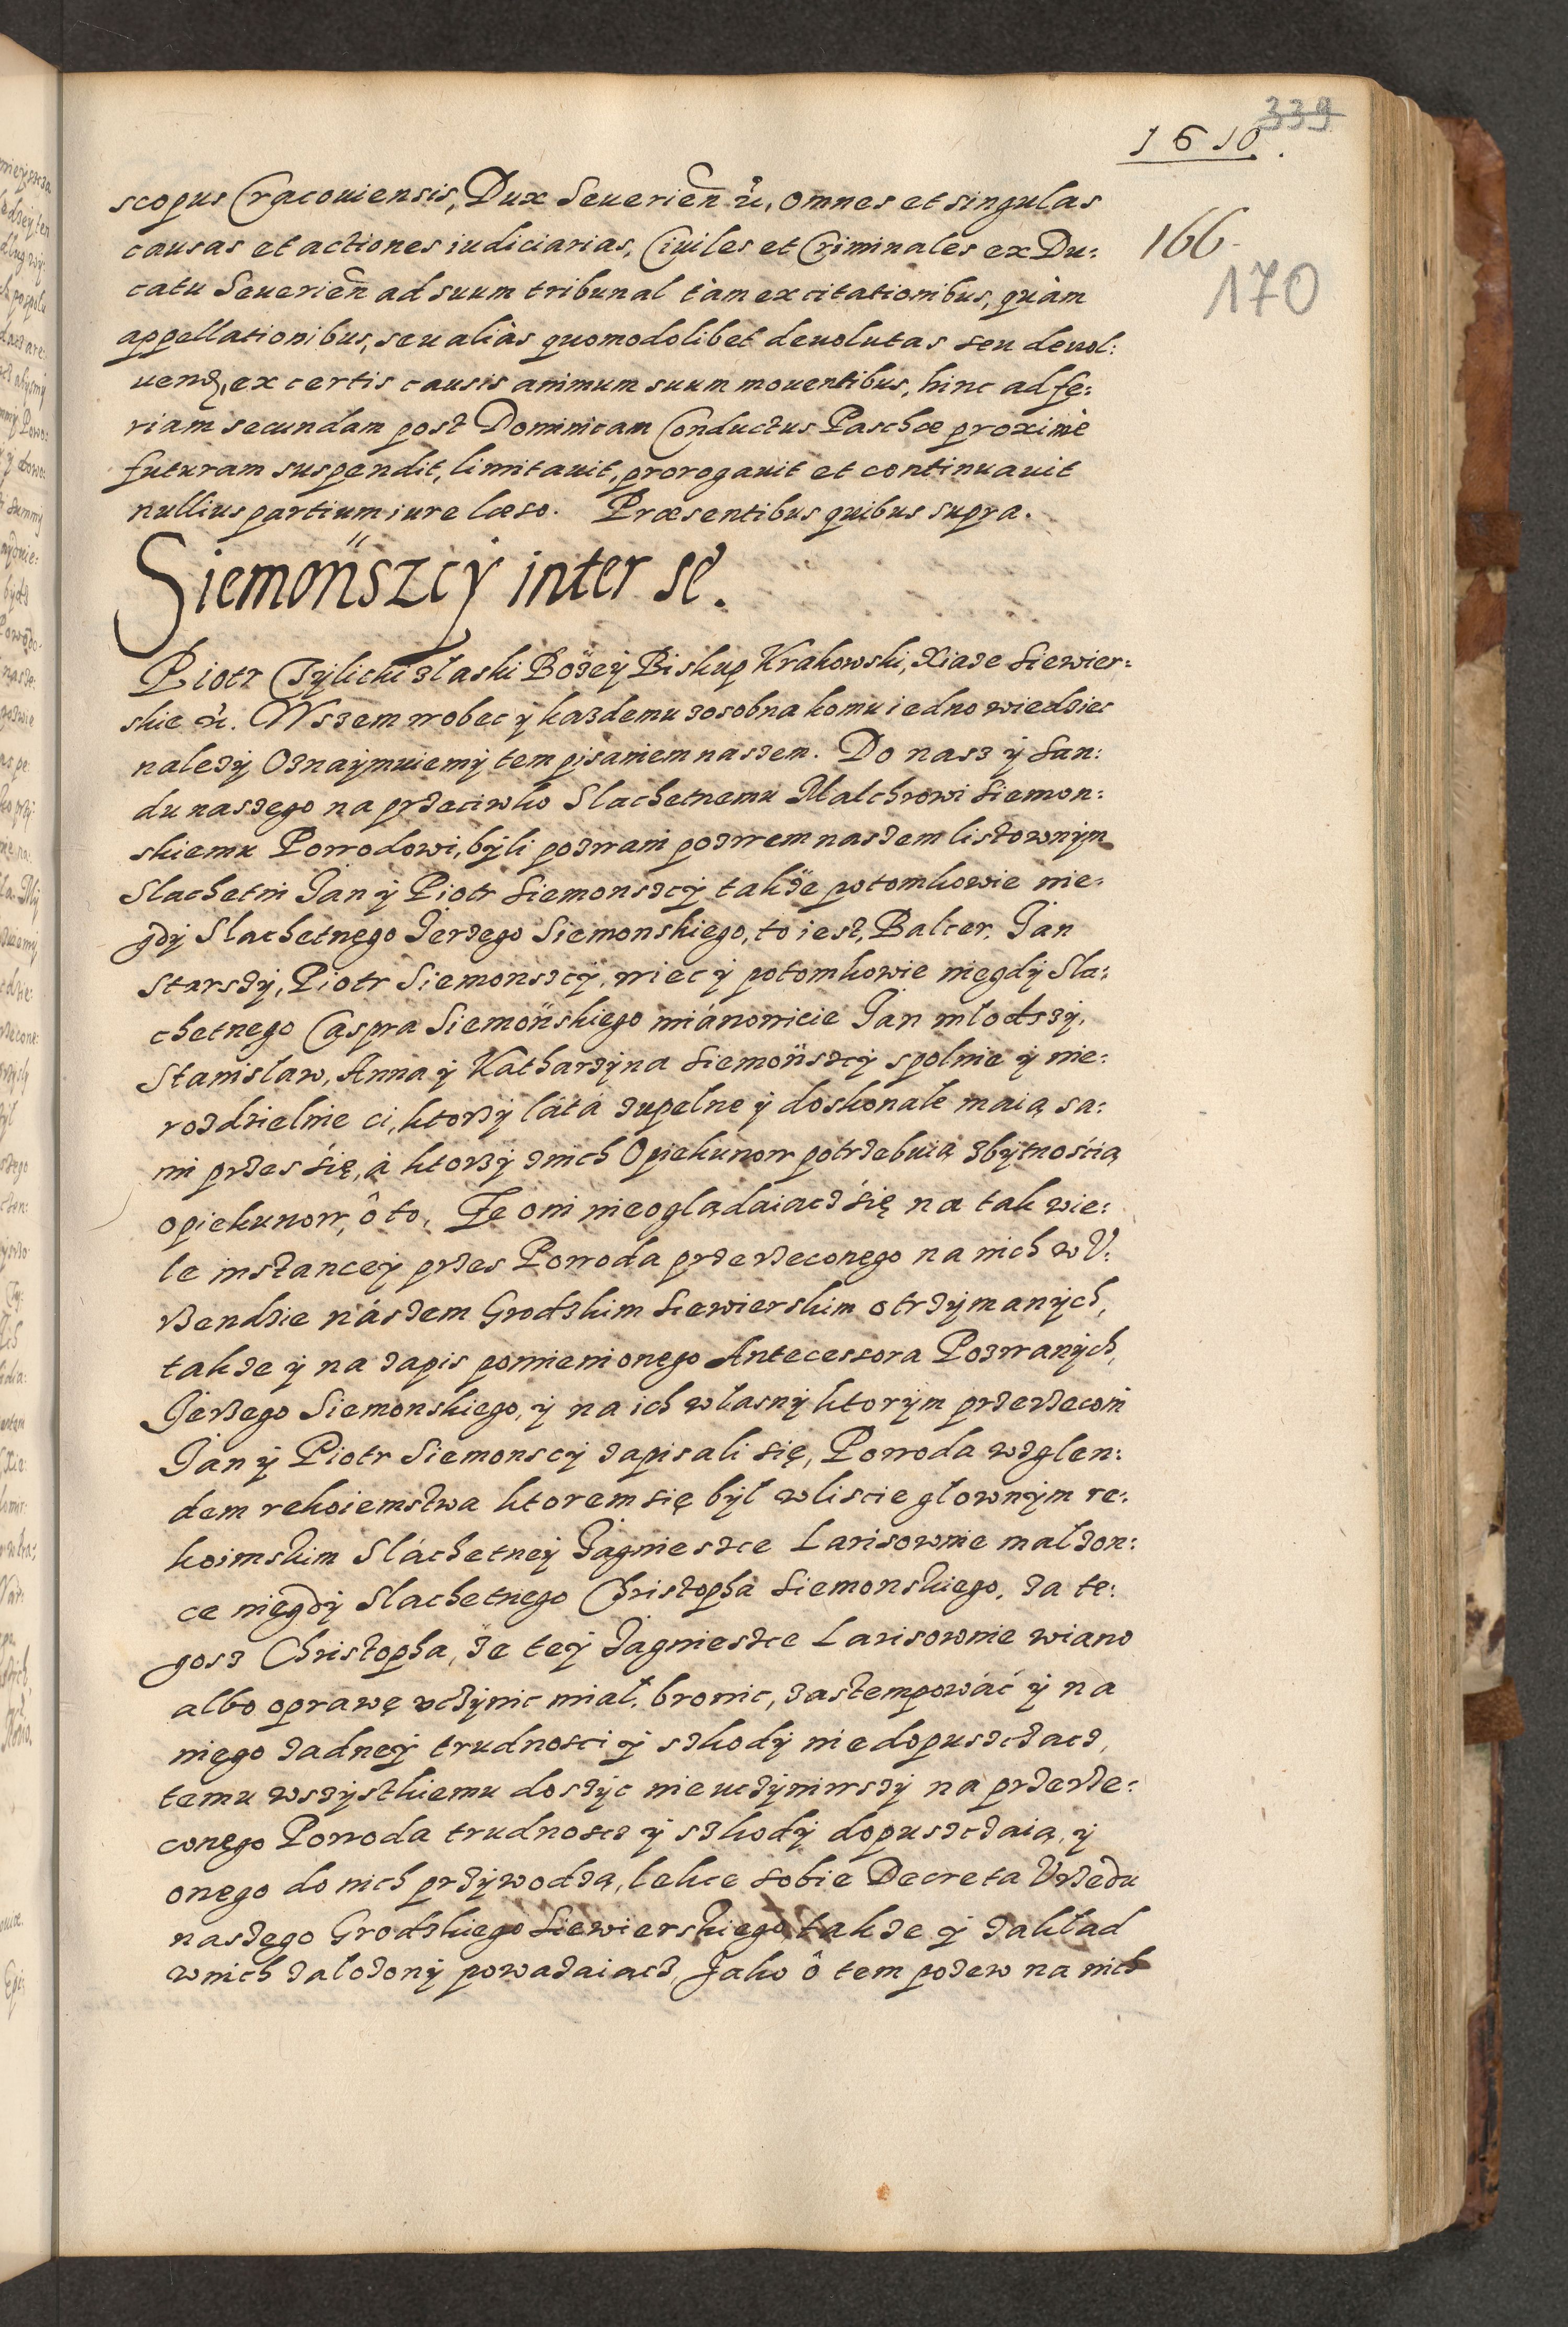 339
1610.
166
170
scopus Cracouiensis, Dux Seuerien̄ &c, omnes et singulas
causas et actiones iudiciarias, Ciuiles et Criminales ex Du:
catu Seuerien̄ ad suum tribunal tàm ex citationibus, quàm
appellationibus, seu aliàs quomodolibet deuolutas seu deuol:
uend, ex certis causis animum suum mouentibus, hinc ad fe:
riam secundam post Dominicam Conductus Paschæ proximè
futuram suspendit, limitauit, prorogauit et continuauit
nullius partium iure læso. Præsentibus quibus supra.
Siemonszcÿ inter se.
Piotr Tÿlicki zlaski Bozeÿ Biskup Krakowski, Xiaze Siewier:
skie &c. Wszem wobec ÿ kazdemu zosobna komu iedno wiedziec
nalezÿ Oznaÿmuiemÿ tem pisaniem naszem. Do nasz ÿ San:
du naszego na przeciwko Slachetnemu Malchrowi Siemon:
skiemu Powodowi, bÿli pozwani pozwem naszem listownÿm
Slachetni Jan ÿ Piotr Siemonszcÿ takze potomkowie nie:
gdÿ Slachetnego Jerzego Siemonskiego, to iest, Balcer, Jan
starszÿ, Piotr Siemonszcÿ, wiec ÿ potomkowie niegdÿ Sla:
chetnego Caspra Siemonskiego mianowicie Jan mlodszÿ,
Stanislaw, Anna ÿ Katharzÿna Siemonszcÿ spolnie ÿ nie:
rozdzielnie ci, ktorzÿ láta zupelne ÿ doskonale maią sa:
mi przes się, à ktorzÿ znich Opiekunow potrzebuią zbÿtnoscią
opiekunow, ô to, Ze oni nieogladaiacz się na tak wie:
le instanceÿ przes Powoda przerzeconego na nich w V:
rzendzie nászem Grodzkim Siewierskim otrzÿmanÿch,
takze ÿ na zapis pomienionego Antecessora Pozwanÿch,
Jerzego Siemonskiego, ÿ na ich wlasnÿ ktorÿm przerzeconi
Jan ÿ Piotr Siemonscÿ zapisali się, Powoda wzglen:
dem rekoiemstwa ktorem się bÿl w liscie glownÿm re:
koimskim Sláchetneÿ Jagnieszce Larisownie malzon:
ce niegdÿ Slachetnego Christopha Siemonskiego, za te:
gosz Christopha, ze teÿ Jagnieszce Larisownie wiano
albo oprawę vczÿnic mial, bronic, zastempowáć ÿ na
niego zadneÿ trudnosci ÿ szkodÿ niedopuszczacz,
temu wszÿstkiemu doszÿc nie uczÿniwszÿ na przerze:
conego Powoda trudnosci ÿ szkodÿ dopuszczaią, ÿ
onego do nich przÿwodzą, lekce sobie Decreta Vrzedu
naszego Grodzkiego Siewierskiego takze ÿ zaklad
wnich zalozonÿ powazaiacz, Jako ô tem pozew na nich